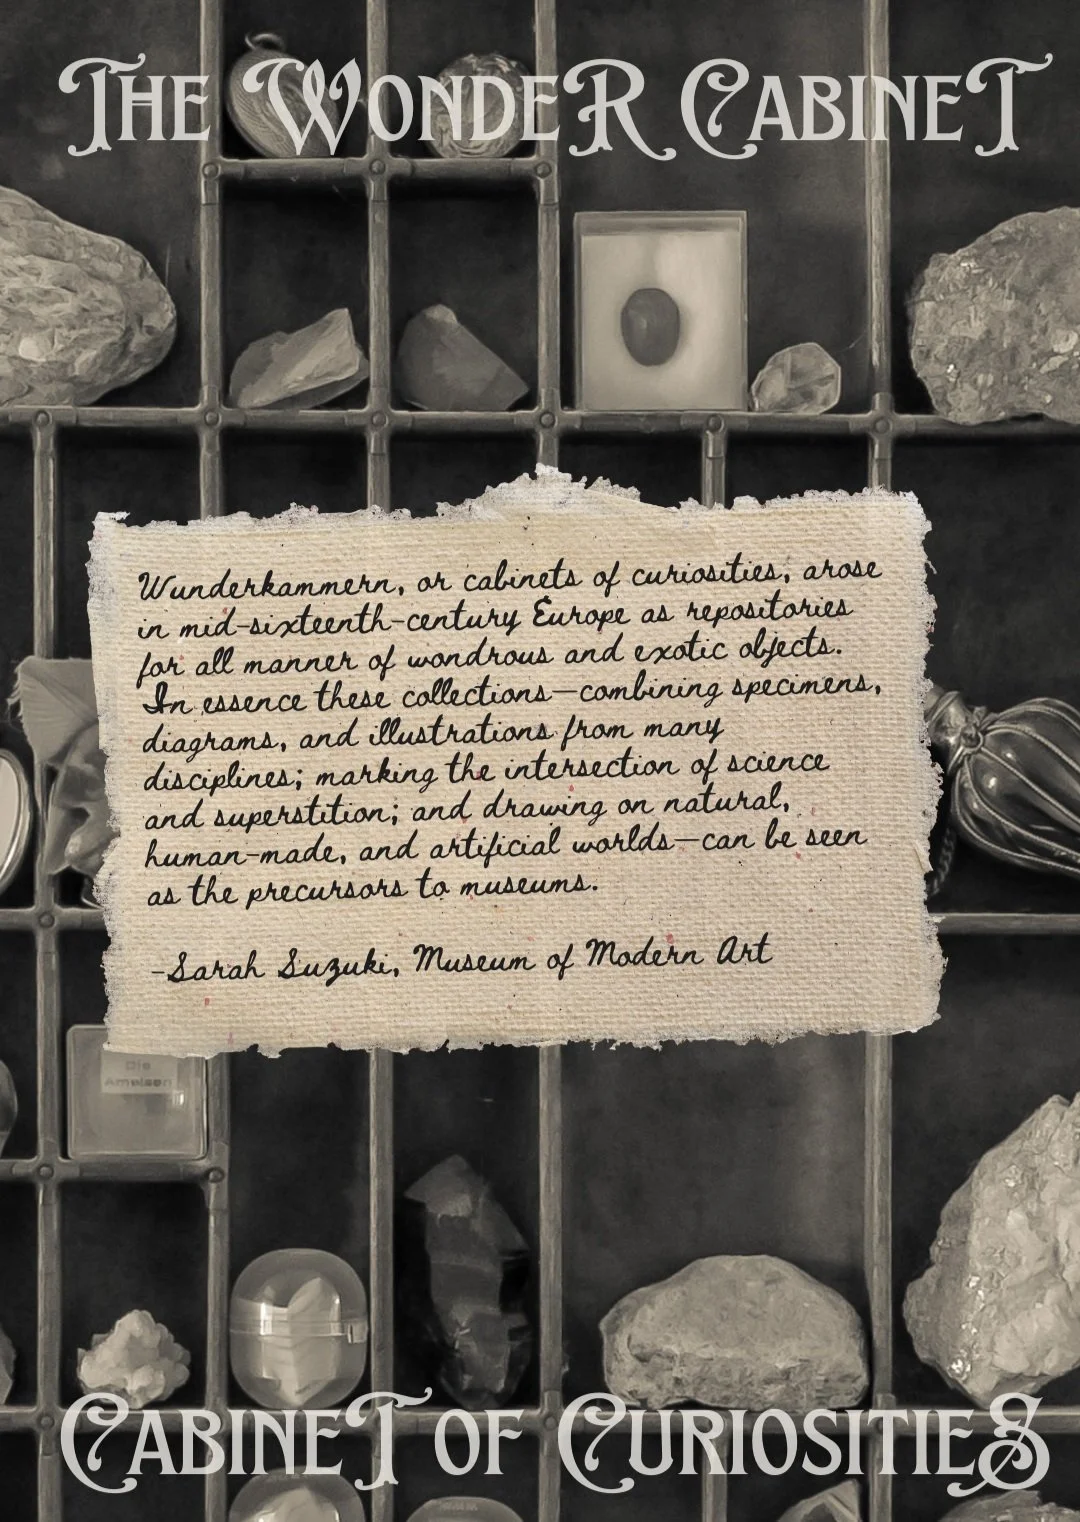 The Wonder Cabinet
Wunderkammern, or cabinets of curiosities, arose
in mid-sixteenth-century Europe as repositories
for all manner of wondrous and exotic objects.
In essence these collections—combining specimens,
diagrams, and illustrations from many
disciplines; marking the intersection of science
and superstition; and drawing on natural,
human-made, and artificial worlds—can be seen
as the precursors to museums.
-Sarah Suzuki, Museum of Modern Art
Die
Ameisen
Cabinet of Curiosities